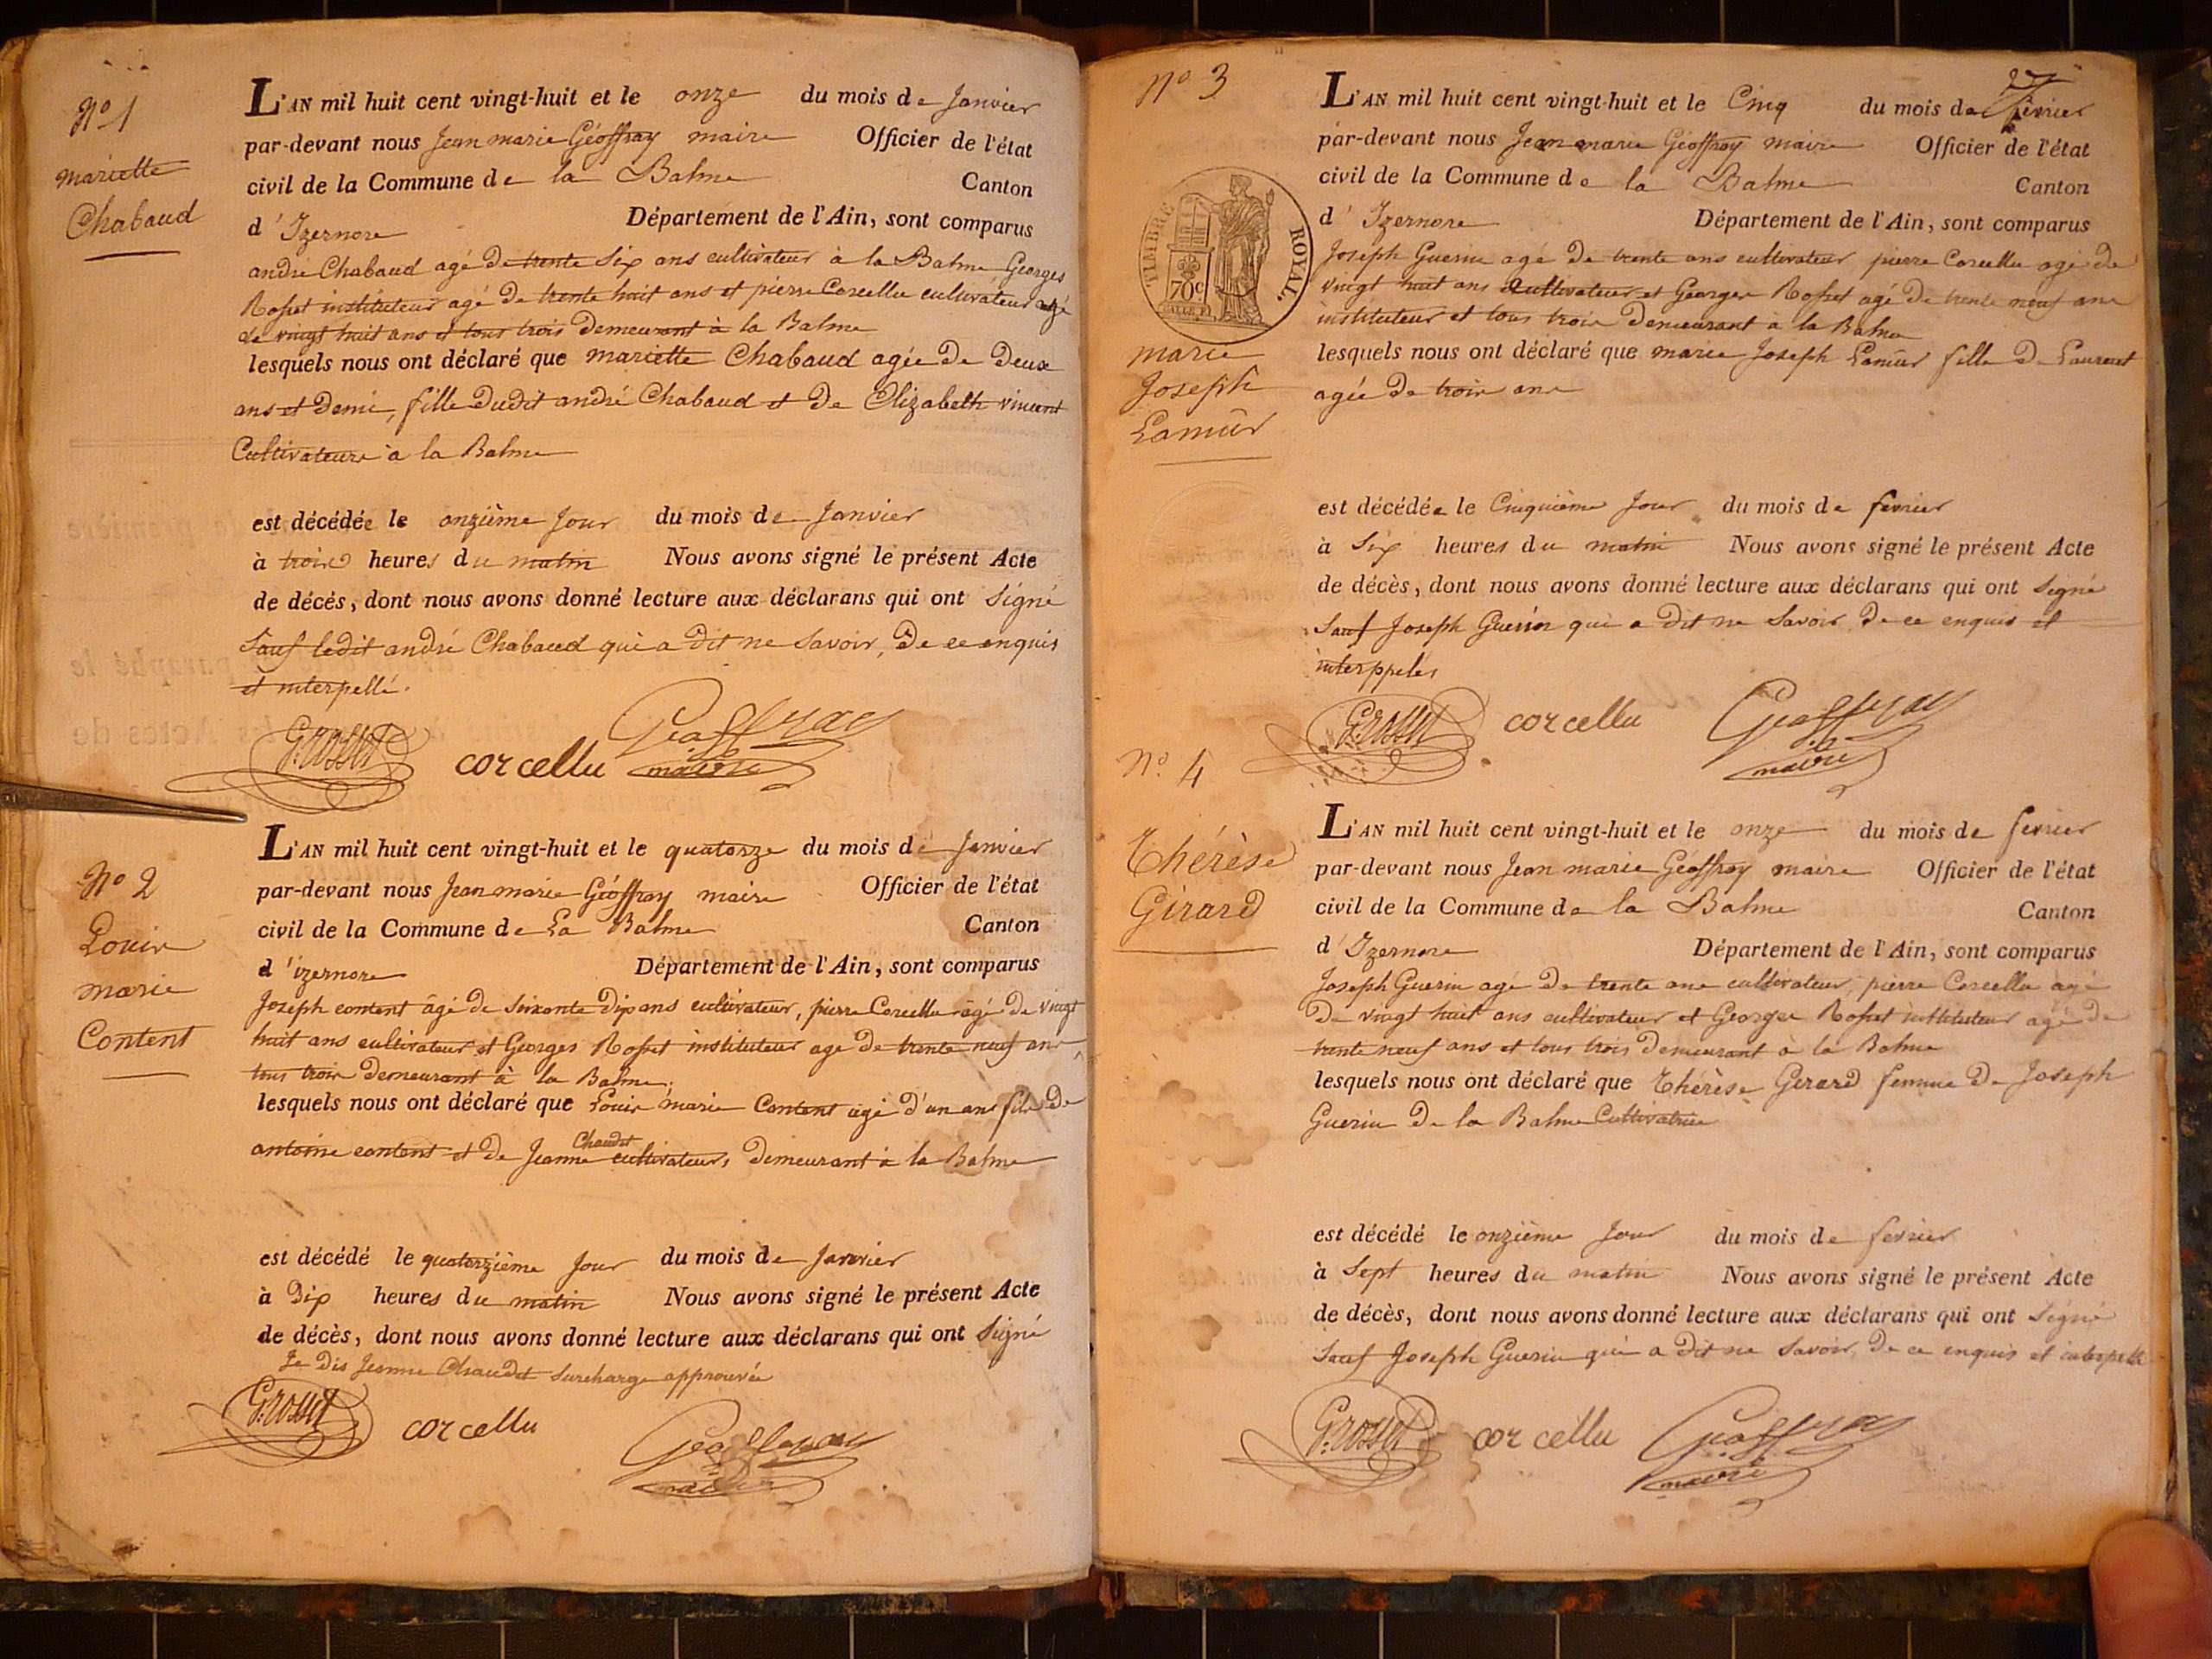 N° 1
mariette
Chabaud
L'AN mil huit cent vingt-huit et le onze du mois de Janvier
par-devant nous Jean marie Géoffray maire Officier de l'état
civil de la Commune de la Balme Canton
d'Izernore Département de l'Ain, sont comparus
andré Chabaud agé De trente Six ans cultivateur à la Balme Georges
Rosset instituteur agé De trente huit ans et pierre Corcellu cultivateur agé
de vingt huit ans et tous trois Demeurant à la Balme
lesquels nous ont déclaré que mariette Chabaud agée De Deux
ans et Demi, fille Dudit andré Chabaud et De Elizabeth vincent
Cultivateurs à la Balme
est décédée le onzième Jour du mois de Janvier
à trois heures du matin Nous avons signé le présent Acte
de décès, dont nous avons donné lecture aux déclarans qui ont Signé
Sauf ledit andré Chabaud qui a Dit ne Savoir, De ce enquis
et interpellé.
G. rosset corcellu Geoffray
maire
N° 2
Louis
marie
Content
L'AN mil huit cent vingt-huit et le quatorze du mois de Janvier
par-devant nous Jean marie Géoffray maire Officier de l'état
civil de la Commune de La Balme Canton
d'izernore Département de l'Ain, sont comparus
Joseph content âgé de Soixante Dix ans cultivateur, pierre Corcellu âgé De vingt
huit ans cultivateur et Georges Rosset instituteur age De trente neuf ans
tous trois Demeurant à la Balme.
lesquels nous ont déclaré que Louis marie Content agé d'un ans fils De
Chaudet
antoine content et De Jeanne cultivateurs Demeurant à la Balme
est décédé le quatorzième Jour du mois de Janvier
à Dix heures du matin Nous avons signé le présent Acte
de décès, dont nous avons donné lecture aux déclarans qui ont Signé
Je Dis Jeanne Chaudet Surcharge approuvée
G. rosset corcellu Geoffray
maire
N° 3
TIMBRE ROYAL.
70c
marie
Joseph
Lamûr
L'AN mil huit cent vingt-huit et le Cinq du mois de février
par-devant nous Jean marie Géoffray maire Officier de l'état
civil de la Commune de la Balme Canton
d'Izernore Département de l'Ain, sont comparus
Joseph Guerin agé De trente ans cultivateur pierre Corcellu agé de
vingt huit ans Cultivateur et Georges Rosset agé De trente neuf ans
instituteur et tous trois Demeurant à la Balme
lesquels nous ont déclaré que marie Joseph Lamûr fille De Laurent
agée De trois ans
est décédée le Cinquième Jour du mois de fevrier
à Six heures du matin Nous avons signé le présent Acte
de décès, dont nous avons donné lecture aux déclarans qui ont Signé
Sauf Joseph Guerin qui a Dit ne Savoir De ce enquis et
interppeles
G. rosset corcellu Geoffray
maire
N° 4
Thérèse
Girard
L'AN mil huit cent vingt-huit et le onze du mois de fevrier
par-devant nous Jean marie Géoffray maire Officier de l'état
civil de la Commune de la Balme Canton
d'Izernore Département de l'Ain, sont comparus
Joseph Guerin agé De trente ans cultivateur, pierre Corcellu agé
De vingt huit ans cultivateur et Georges Rosset instituteur agé De
trente neuf ans et tous trois Demeurant à la Balme
lesquels nous ont déclaré que Thérèse Gerard femme De Joseph
Guerin De la Balme Cultivatrice
est décédé le onzième Jour du mois de fevrier
à Sept heures du matin Nous avons signé le présent Acte
de décès, dont nous avons donné lecture aux déclarans qui ont Signé
Sauf Joseph Guerin qui a Dit ne Savoir, De ce enquis et interpellé
G. rosset corcellu Geoffray
maire